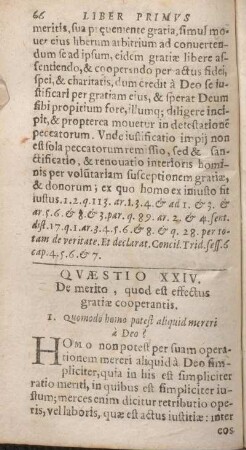 66 LIBER PRIMVS
meritis, sua præueniente gratia, simul mo-
uet eius liberum arbitrium ad conuerten-
dum se ad ipsum, eidem gratiæ libere as-
sentiendo, & cooperando per actus fidei,
spei, & charitatis, dum credit à Deo se iu-
stificari per gratiam eius, & sperat Deum
sibi propitium fore, illumq; diligere inci-
pit, & propterea mouetur in detestationē
peccatorum. Vnde iustificatio impij non
est sola peccatorum remissio, sed & san-
ctificatio, & renouatio interioris homi-
nis per volūtariam susceptionem gratiæ,
& donorum; ex quo homo ex iniusto fit
iustus. 1.2.q.113. ar.1.3.4. & ad 1. & 3. &
ar.5.6. & 8. & 3. par. q. 89. ar. 2. & 4. sent.
dist. 17. q. 1. ar. 3. 4. & 5. & q. 28. per to-
tam de veritate. Et declarat. Concil. Trid. sess. 6
cap. 4. 5. 6. & 7.
QVÆSTIO XXIV.
De merito, quod est effectus
gratiæ cooperantis.
1. Quomodo homo potest aliquid mereri
à Deo?
HOMO non potest per suam opera-
tionem mereri aliquid à Deo sim-
pliciter, quia in his est simpliciter
ratio meriti, in quibus est simpliciter iu-
stum; merces enim dicitur retributio ope-
ris, vel laboris, quæ est actus iustitiæ: inter
eos